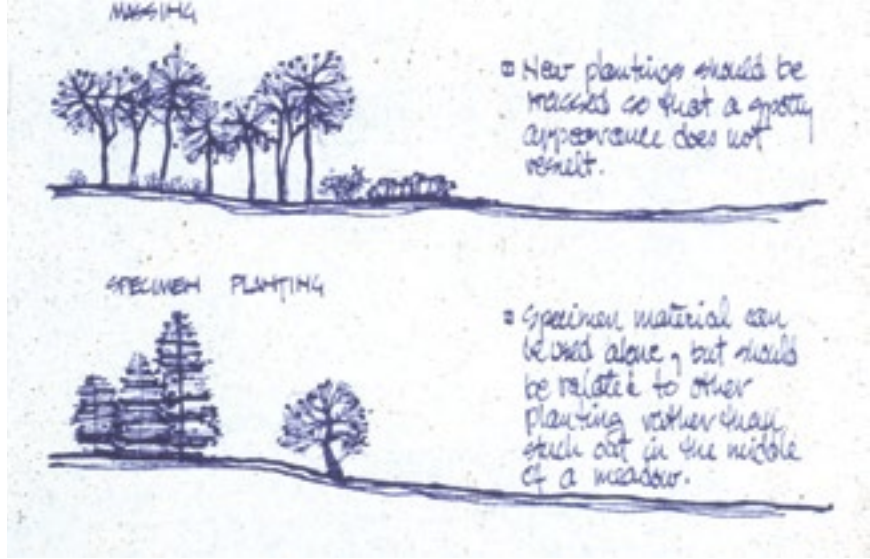 MASSING
New plantings should be
massed so that a spotty
appearance does not
result.
SPECIMEN PLANTING
Specimen material can
be used alone, but should
be related to other
planting rather than
stuck out in the middle
of a meadow.